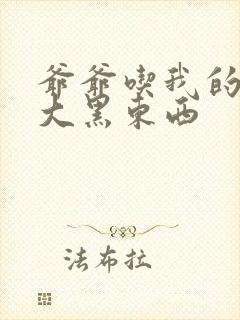 爷爷喫我的
大黑东西
法布拉